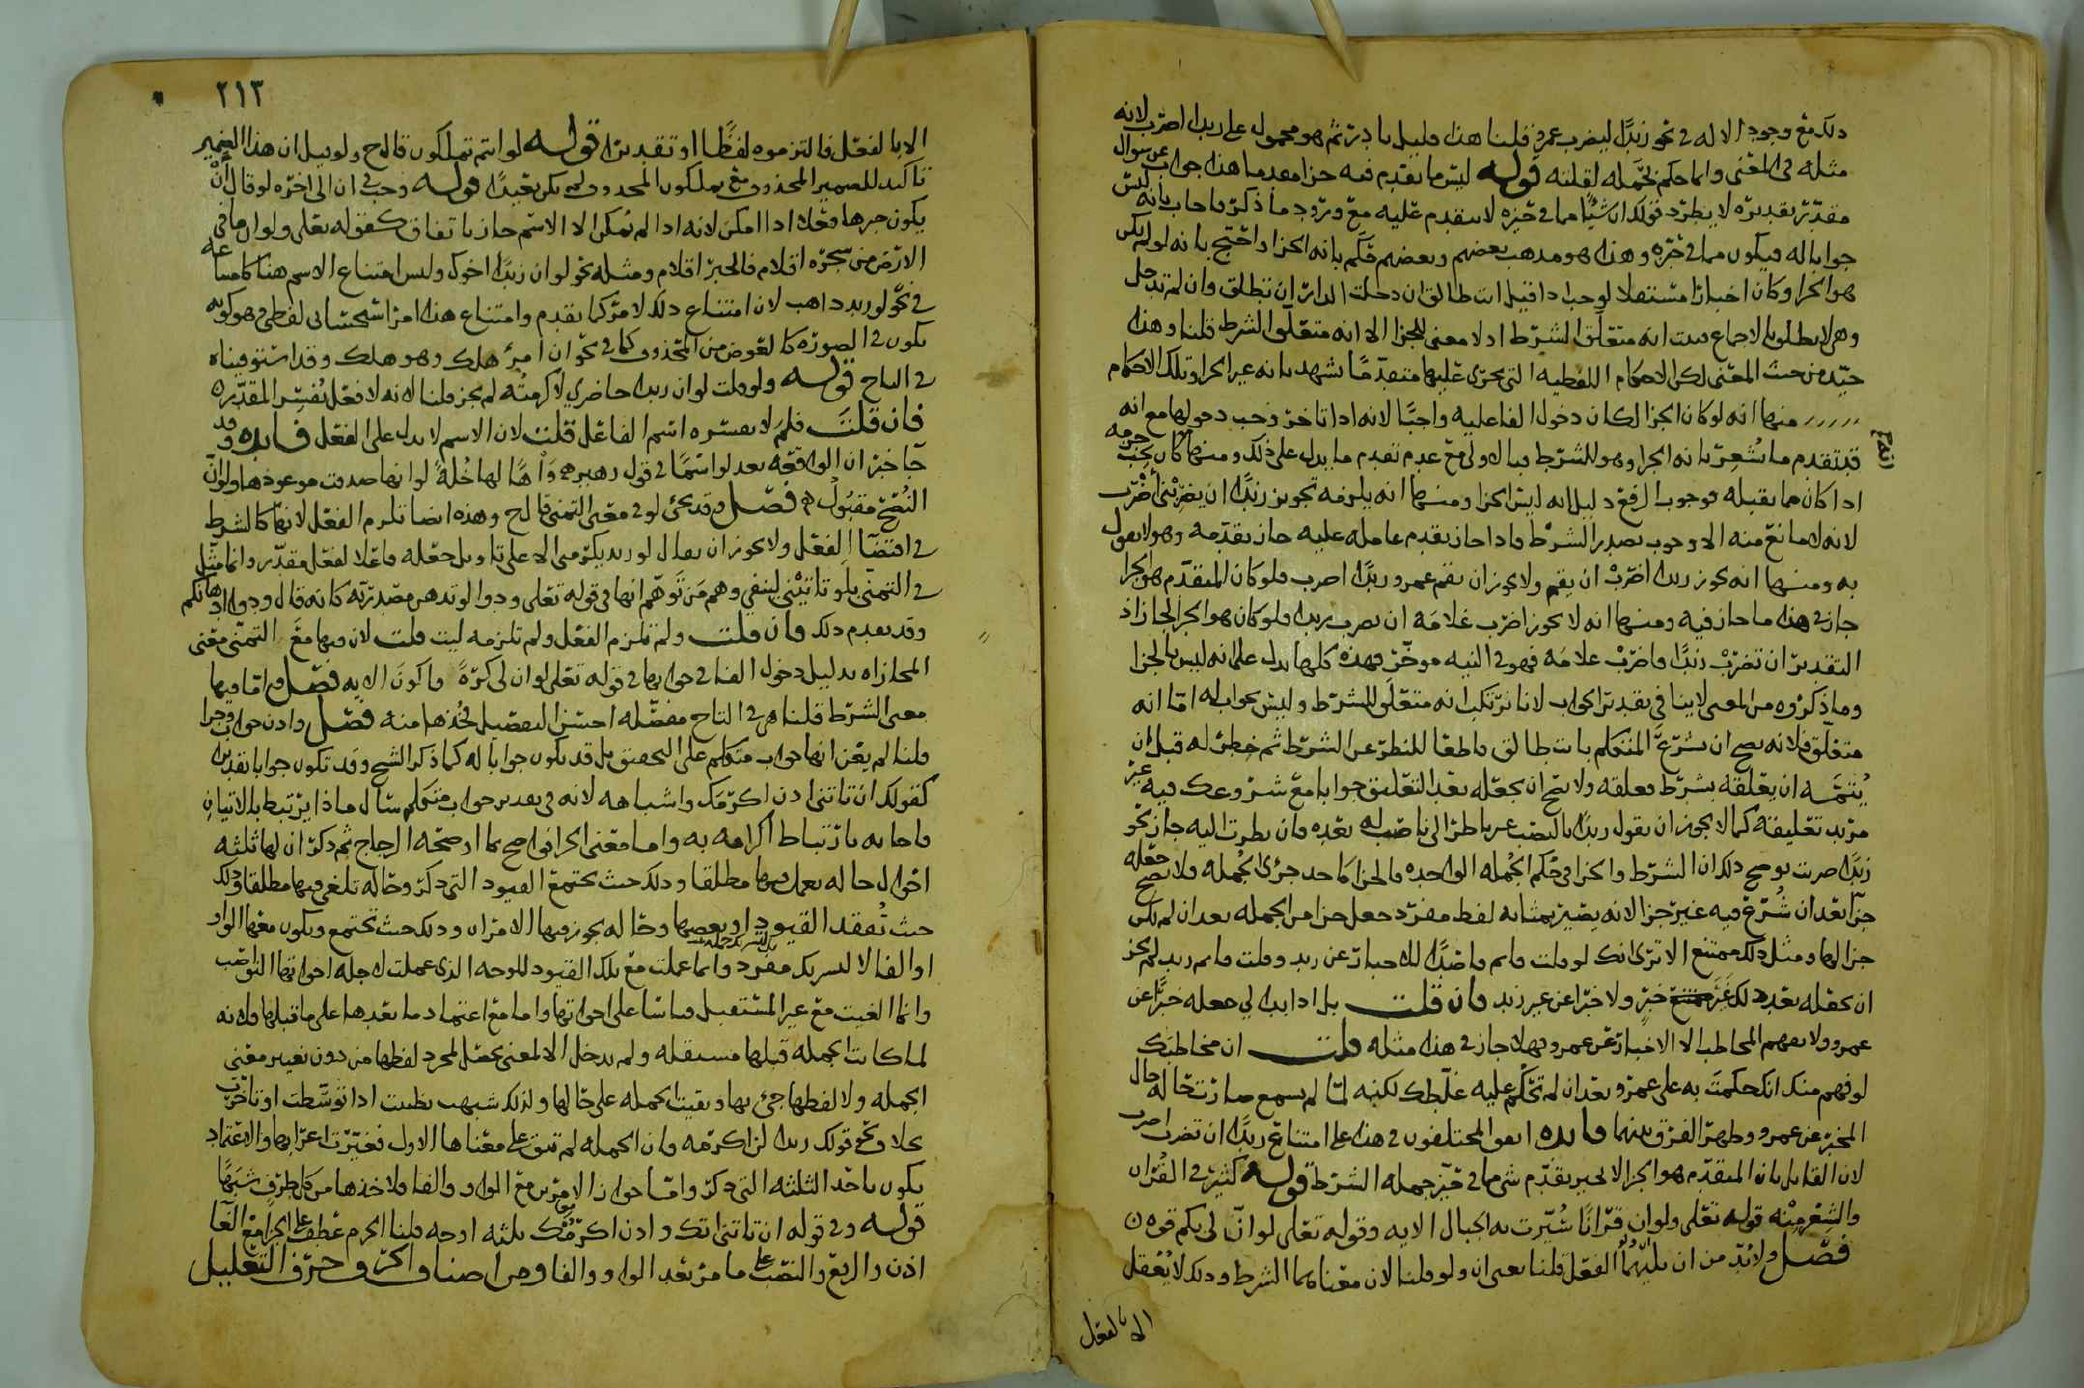 ذلك مع وجود الاله في نحو زيدًا ليضرب عمرو قلنا هذا قليل نادر ثم هو محمول على زيدا اضرب لانه
مثله في المعنى وانما حكم بحمله لقلته قوله ليس ما تقدم فيه جزا مقدما هذا جواب عن سوال
مقدر تقديره لا يطرد قولك ان شيًا مما في حيزه لا يتقدم عليه مع ورود ما ذكر فاجاب بانه ليس
جوابا له فيكون مما في حيزه وهذا هو مذهب بعضهم وبعضهم حكم بانه الجزا واحتج بانه لو لم يكن
هو الجزا وكان اخبارا مستقلا لوجب اذا قيل انت طالق ان دخلت الدار ان تطلق وان لم تدخل
وهي لا تطلق بالاجماع فثبت انه متعلق الشرط اذ لا معنى للجزا الا انه متعلق الشرط قلنا وهذا
جيد من حيث المعنى لكن الاحكام اللفظيه التي تجري عليها متقدمًا تشهد بانه غير الجزا وتلك الاحكام
منها انه لو كان الجزا لكان دخول الفا عليه واجبًا لانه اذا تاخر وجب دخولها مع انه
قد تقدم ما يشعر بانه الجزا وهو للشرط فبالاولى مع عدم تقدم ما يدل على ذلك ومنها كان يجب جزمه
اذا كان مما يقبله فوجوب الرفع دليل انه ليس الجزا ومنها انه يلزمه تجويز زيدًا ان يضربني اضرب
لانه لا مانع منه الا وجوب تصدر الشرط فاذا جاز تقدم عامله عليه جاز تقدمه وهو لا يقول
به ومنها انه يجوز زيدا اضرب ان يقم ولا يجوز ان يقم عمرو زيدًا اضرب فلو كان المتقدم هو الجزا
جاز في هذا ما جاز فيه ومنها انه لا يجوز اضرب غلامه ان تضرب زيدا فلو كان هو الجزا لجاز اذ
التقدير ان تضرب زيدًا فاضرب غلامه فهو في النيه موخر فهذه كلها تدل على انه ليس بالجزا
وما ذكروه من المعنى لا ينافي تقدير الجواب لانا نرتكب انه متعلق للشرط وليس بجواب له اما انه
متعلق فلانه يصح ان يشرع المتكلم بانت طالق قاطعا للنظر عن الشرط ثم خطر له قبل ان
يتمه ان يعلقه بشرط فعلقه ولا يصح ان يجعله بعد التعليق جوابا مع شروعك فيه غير
مريد تعليقه كما لا يجوز ان تقول زيدًا بالنصب غير ناظر الى ناصب له بعده فان نظرت اليه جاز نحو
زيدًا ضربت يوضح ذلك ان الشرط والجزا في حكم الجمله الواحده والجزا كاحد جزئ الجمله ولا يصح جعله
جزًا بعد ان شرع فيه غير جزا لانه يصير بمثابه لفظ مفرد جعل جزا من الجمله بعد ان لم يكن
جزا لها ومثل ذلك ممتنع الا ترى انك لو قلت قام قاصدًا للاخبار عن زيد وقلت قام زيد لم يجز
ان تجعله بعد ذلك غير خبر ولا خبرًا عن غير زيد فان قلت بل اذا بدا لي جعله خبرًا عن
عمرو ولا يفهم المخاطب الا الاخبار عن عمرو فهلا جاز في هذا مثله قلت ان مخاطبك
لو فهم منك انك حكمت به على عمرو بعد ان لم تحكم عليه غلطك لكنه لما لم يسمع صارت حاله حال
المخبر عن عمرو وظهر الفرق بينهما فايده اتفق المختلفون في هذا على امتناع زيدًا ان تضرب اضرب
لان القايل بان المتقدم هو الجزا لا يجيز تقدم شي مما في حيز جمله الشرط قوله كثير في القران
والشعر منه قوله تعلى ولو ان قرانا سُيّرت به الجبال الايه وقوله تعلى لو ان لي بكم قوه
فصل ولا بد من ان يليهما الفعل قلنا يعني ان ولو قلنا لان معناهما الشرط وذلك لا يعقل
الا بالفعل
٢١٣
الا بالفعل فالتزموه لفظًا او تقديرًا قوله لو انتم تملكون قال ح ولو قيل ان هذا الضمير
تاكيد للضمير المحذوف مع تملكون المحذوف لم يكن بعيدًا قوله وجب في ان الى اخره لو قال ان
يكون خبرها فعلا اذا امكن لانه اذا لم يمكن الا الاسم جاز باتفاق كقوله تعلى ولو ان ما في
الارض من شجره اقلام فالخبر اقلام ومثله نحو لو ان زيدًا اخوك وليس امتناع الاسم هنا كامتناعه
في نحو لو زيد ذاهب لان امتناع ذلك لامر كما تقدم وامتناع هذا امر استحساني لفظي وهو كونه
يكون في الصوره كالعوض من المحذوف كما في نحو ان امرؤ هلك وهو هلك وقد استوفيناه
في التاج قوله ولو قلت لو ان زيدا حاضري لاكرمته لم يجز قلنا لانه لا فعل يفسر المقدره
فان قلت فلم لا يفسره اسم الفاعل قلت لان الاسم لا يدل على الفعل فايده وقد
جا خبر ان الواقعه بعد لو اسمًا في قول زهير وَاْهًا لها خُلةً لو انها صدقت موعودها ولو ان
النُصح مقبُول فصل وقد تجئ لو في معنى التمني قال ح وهذه ايضا تلزم الفعل لانها كالشرط
في اقتضآ الفعل ولا يجوز ان يقال لو زيد يكرمني الا على تاويل جعله فاعلا لفعل مقدر وانما مثل
في التمني بلو تاتيني لينفي وهم من توهم انها في قوله تعلى ودوا لو تدهن مصدريه كانه قال ودوا ادهانكم
وقد تقدم ذلك فان قلت ولم تلزم الفعل ولم تلزمه ليت قلت لان فيها مع التمني معنى
المجازاه بدليل دخول الفا في جوابها في قوله تعلى لو ان لي كرّةً فاكونَ الايه فصل واما فيها
معنى الشرط قلنا هي في التاج مفصّله احسن التفصيل فخُذها منه فصل واذن جواب وجزا
قلنا لم يعن انها جواب متكلم على التحقيق بل قد تكون جوابا له كما ذكر الشيخ وقد تكون جوابا تقديرا
كقولك ان تاتني اذن اكرمك واشباهه لانه في تقدير جواب متكلم سال ماذا يرتبط بالاتيان
فاجابه بارتباط اكرامه به واما معنى الجزا فواضح مما اوضحه الزجاج ثم ذكر ان لها ثلثه
احوال حاله تعمل فيها مطلقا وذلك حيث تجتمع القيود التي ذكر وحاله تلغى فيها مطلقا وذلك
حيث تُفقد القيود او بعضها وحاله يجوز فيها الامران وذلك حيث تجتمع ويكون معها الواو
او الفا لا لتشريك مفرد وانما عملت مع تلك القيود للوجه الذي عملت لاجله اخواتها النواصب
وانما الغيت مع غير المستقبل قياسًا على اخواتها واما مع اعتماد ما بعدها على ما قبلها فلانه
لما كانت الجمله قبلها مستقله ولم يدخل الا لمعنى يحصل لمجرد لفظها من دون تغيير معنى
الجمله ولا لفظها جئ بها وبقيت الجمله على حالها ولذلك شبهت بظننت اذا توسطت او تاخرت
بخلاف نحو قولك زيد لن اكرمه فان الجمله لم تبق على معناها الاول فغيرت اعرابها والاعتماد
يكون باحد الثلثه التي ذكر واما جواز الامرين مع الواو والفا فلاخذها من كل طرف شبهًا
قوله وفي قوله ان تاتني اتك واذن اكرمك ثلثه اوجه قلنا الجزم عطف على الجزا مع الغا
اذن والرفع والنصب على ما مر بعد الواو والفا ومن اصناف الحرف حرف التعليل